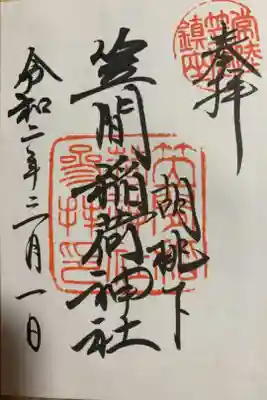 常陸
笠間
鎮座
奉拝
胡桃下
笠間稲荷神社
令和二年二月一日